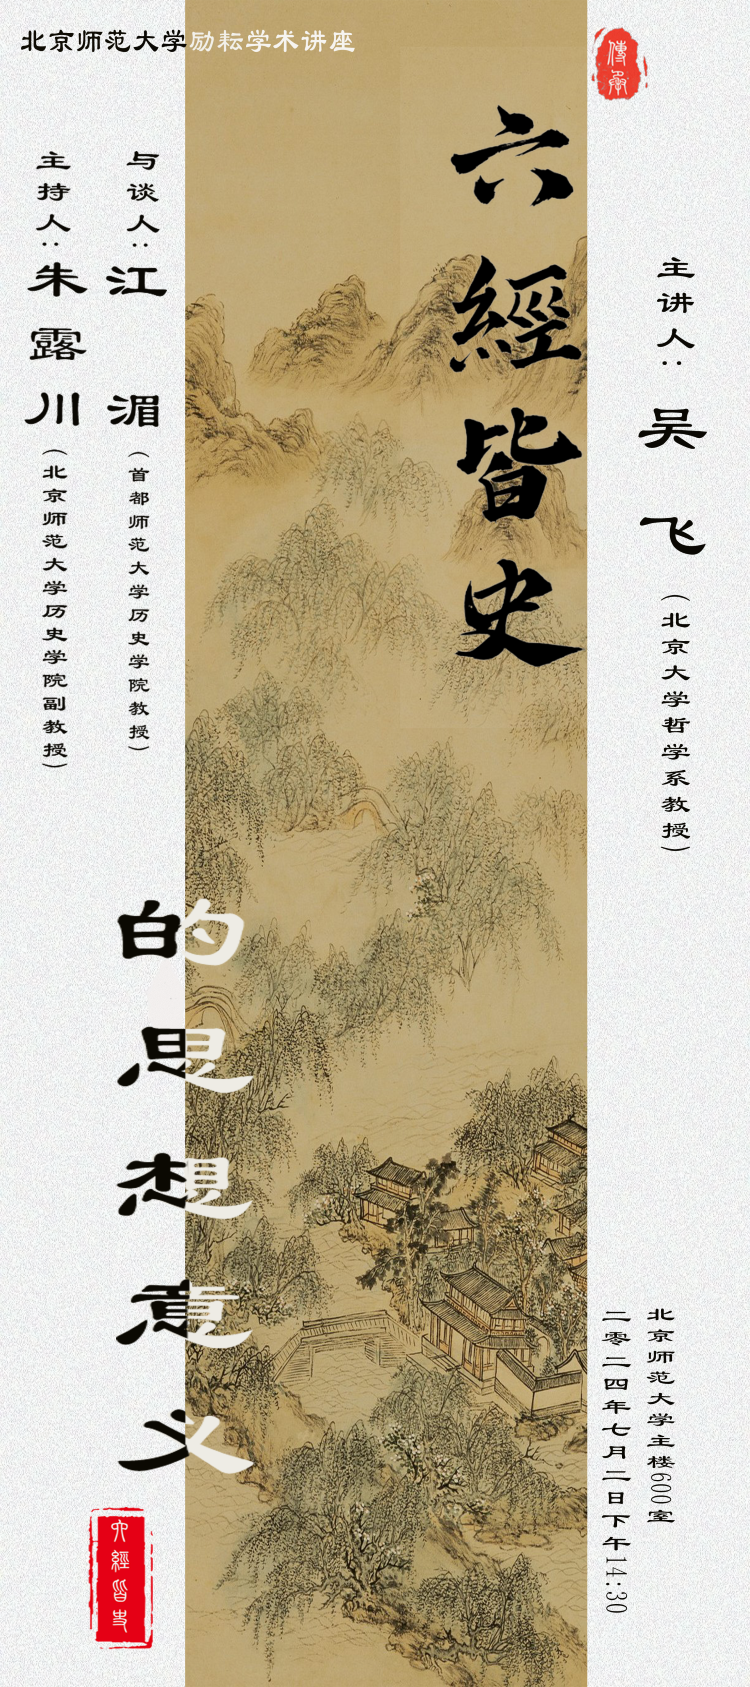 北京师范大学励耘学术讲座
傳承
六經皆史
的思想意义
主讲人：吴飞（北京大学哲学系教授）
与谈人：江湄（首都师范大学历史学院教授）
主持人：朱露川（北京师范大学历史学院副教授）
北京师范大学主楼600室
二零二四年七月二日下午14:30
六經皆史